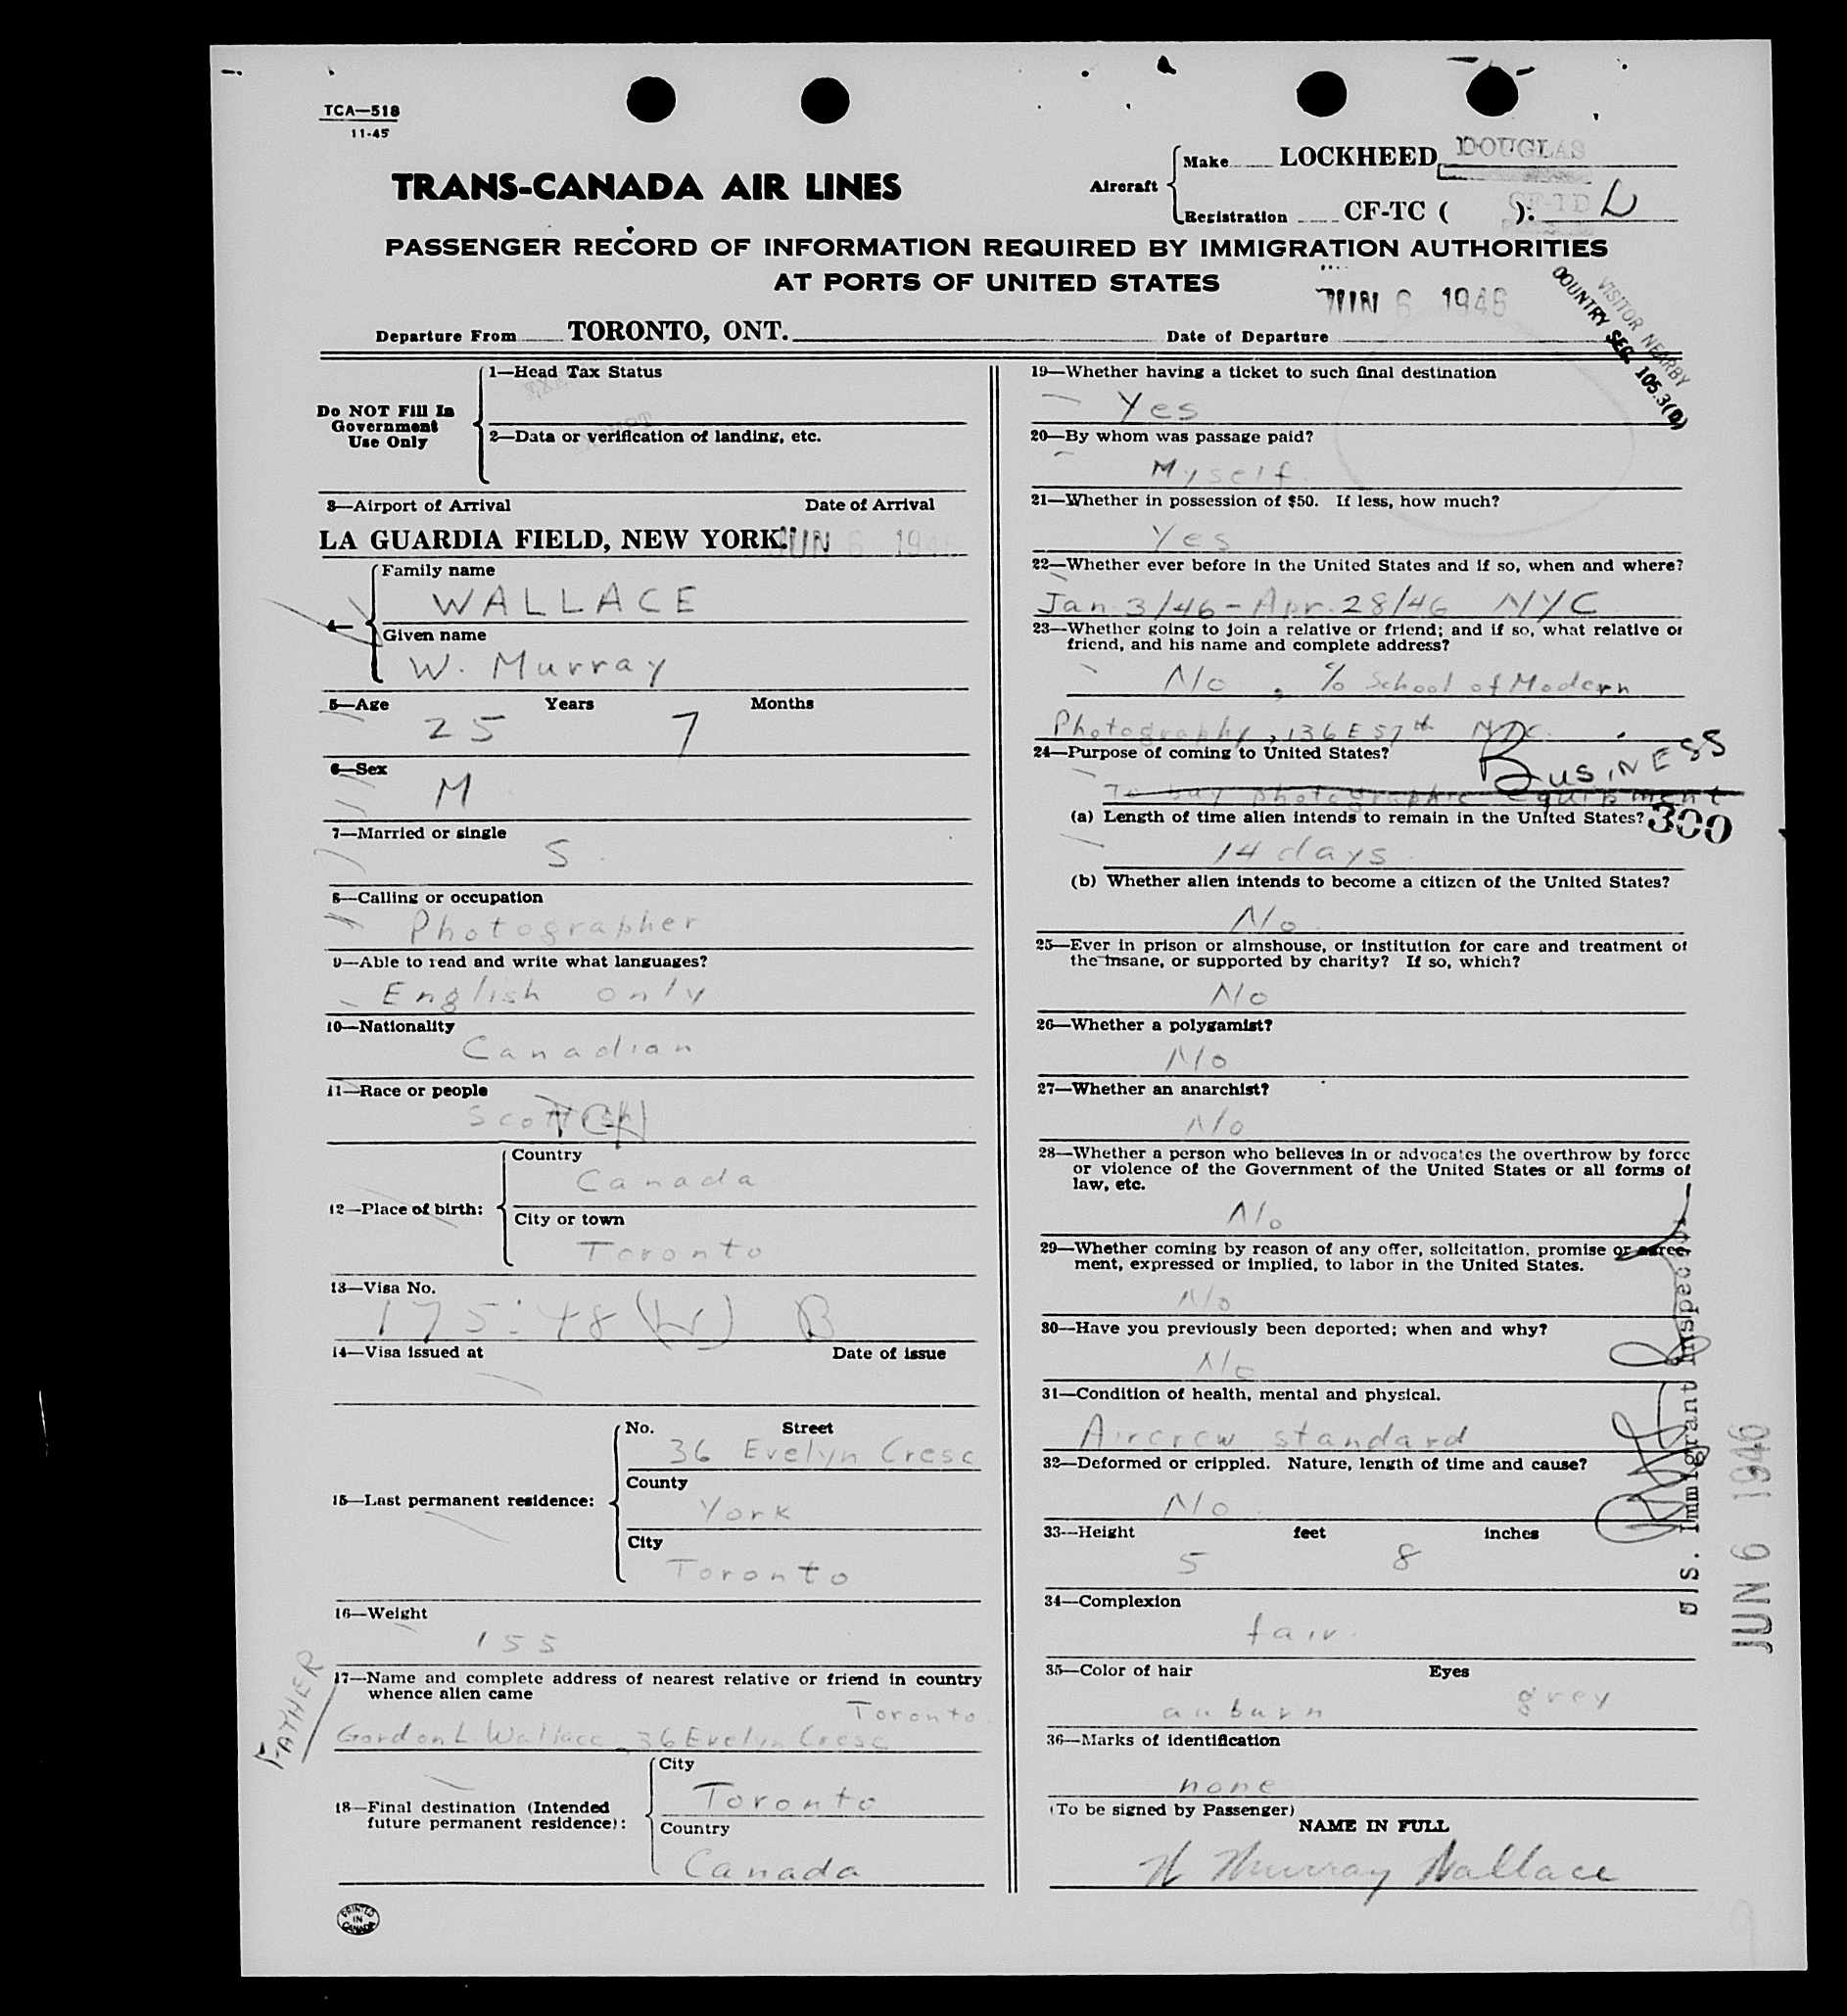 TCA—518
11-45
TRANS-CANADA AIR LINES
Aircraft
Make LOCKHEED DOUGLAS
Registration CF-TC ( ). CF-TD L
PASSENGER RECORD OF INFORMATION REQUIRED BY IMMIGRATION AUTHORITIES
AT PORTS OF UNITED STATES
JUN 6 1946
VISITOR NEARBY
COUNTRY SEC. 105.3(D)
Departure From TORONTO, ONT.
Date of Departure
Do NOT Fill In
Government
Use Only
1—Head Tax Status
2—Data or verification of landing, etc.
3—Airport of Arrival Date of Arrival
LA GUARDIA FIELD, NEW YORK. JUN 6 1946
4—
Family name
WALLACE
Given name
W. Murray
5—Age Years Months
25 7
6—Sex
M
7—Married or single
S
8—Calling or occupation
Photographer
9—Able to read and write what languages?
English only
10—Nationality
Canadian
11—Race or people
Scottish TCH
12—Place of birth:
Country
Canada
City or town
Toronto
13—Visa No.
175:48 (W) B
14—Visa issued at Date of issue
15—Last permanent residence:
No. Street
36 Evelyn Cresc
County
York
City
Toronto
16—Weight
155
FATHER
17—Name and complete address of nearest relative or friend in country
whence alien came
Toronto
Gordon L. Wallace, 36 Evelyn Cresc
18—Final destination (Intended
future permanent residence):
City
Toronto
Country
Canada
PRINTED
IN
CANADA
19—Whether having a ticket to such final destination
Yes
20—By whom was passage paid?
Myself.
21—Whether in possession of $50. If less, how much?
Yes
22—Whether ever before in the United States and if so, when and where?
Jan. 3/46 - Apr. 28/46 NYC
23—Whether going to join a relative or friend; and if so, what relative or
friend, and his name and complete address?
No, % School of Modern
Photography, 136 E 57th NYC.
24—Purpose of coming to United States?
BUSINESS
To buy photographic equipment
(a) Length of time alien intends to remain in the United States?
300
14 days
(b) Whether alien intends to become a citizen of the United States?
No.
25—Ever in prison or almshouse, or institution for care and treatment of
the insane, or supported by charity? If so, which?
No
26—Whether a polygamist?
No
27—Whether an anarchist?
No
28—Whether a person who believes in or advocates the overthrow by force
or violence of the Government of the United States or all forms of
law, etc.
No
29—Whether coming by reason of any offer, solicitation, promise or agree-
ment, expressed or implied, to labor in the United States.
No
30—Have you previously been deported; when and why?
No
31—Condition of health, mental and physical.
Aircrew standard
32—Deformed or crippled. Nature, length of time and cause?
No.
33—Height feet inches
5 8
34—Complexion
fair.
35—Color of hair Eyes
auburn grey
36—Marks of identification
none
(To be signed by Passenger)
NAME IN FULL
W Murray Wallace
U.S. Immigrant Inspector
JUN 6 1946